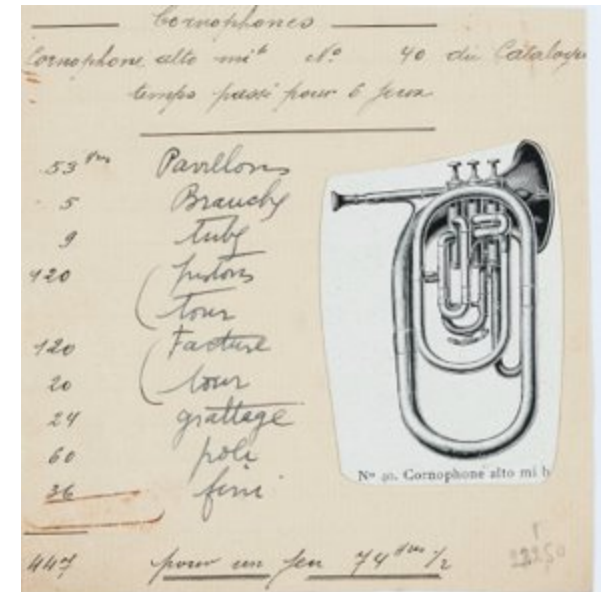 Cornophones
Cornophone alto mi♭ No 40 du Catalogue
temps passé pour 6 jeux
53 hres Pavillons
5 Branches
9 tubes
120 pistons
tour
120 Facture
20 tour
24 grattage
60 poli
36 fini
447 pour un jeu 74 hres 1/2
No 40. Cornophone alto mi b